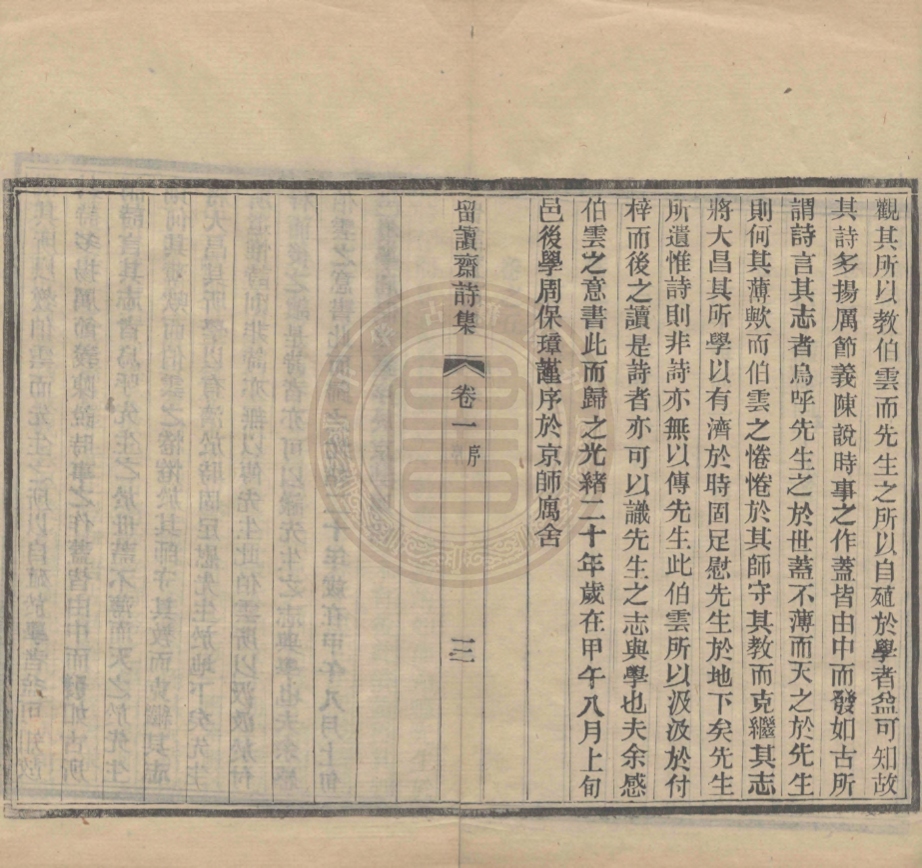 觀其所以教伯雲而先生之所以自殖於學者益可知故
其詩多揚厲節義陳說時事之作蓋皆由中而發如古所
謂詩言其志者烏呼先生之於世蓋不薄而天之於先生
則何其薄歟而伯雲之惓惓於其師守其教而克繼其志
將大昌其所學以有濟於時固足慰先生於地下矣先生
所遺惟詩則非詩亦無以傳先生此伯雲所以汲汲於付
梓而後之讀是詩者亦可以識先生之志與學也夫余感
伯雲之意書此而歸之光緒二十年歲在甲午八月上旬
邑後學周保璋謹序於京師寓舍
留讀齋詩集 卷一 序 三